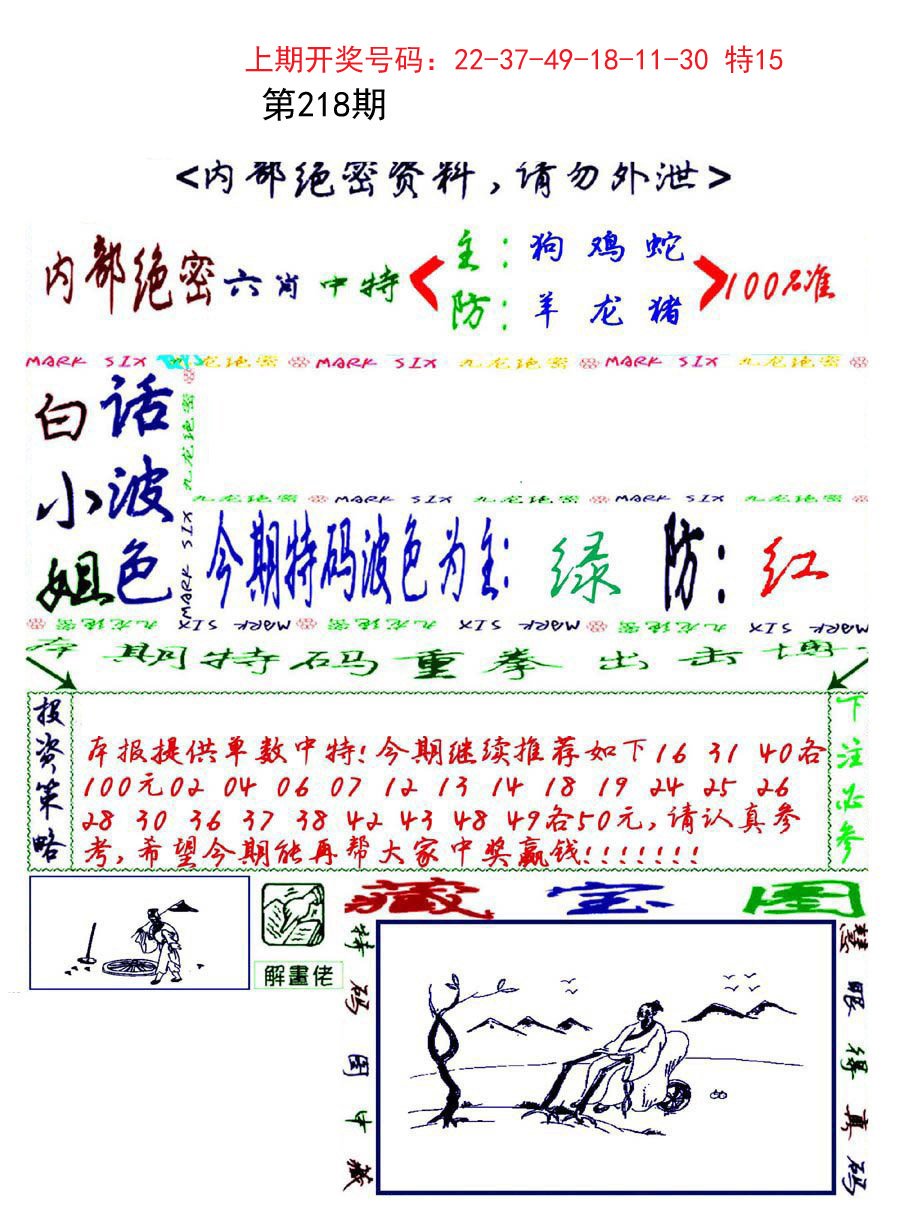 上期开奖号码：22-37-49-18-11-30 特15
第218期
<内部绝密资料，请勿外泄>
内部绝密六肖中特
主：狗 鸡 蛇
防：羊 龙 猪
100%准
MARK SIX 九龙绝密 MARK SIX 九龙绝密 MARK SIX 九龙绝密
白话
小波
姐色
九龙绝密
MARK SIX
九龙绝密 MARK SIX 九龙绝密 MARK SIX 九龙绝密
今期特码波色为主：绿 防：红
九龙绝密 MARK SIX 九龙绝密 MARK SIX 九龙绝密 MARK SIX
本期特码重拳出击博
投资策略
本报提供单数中特！今期继续推荐如下16 31 40各
100元02 04 06 07 12 13 14 18 19 24 25 26
28 30 36 37 38 42 43 48 49各50元，请认真参
考，希望今期能再帮大家中奖赢钱！！！！！！！
下注必参
解畫佬
藏宝图
特码图中藏
慧眼得真码